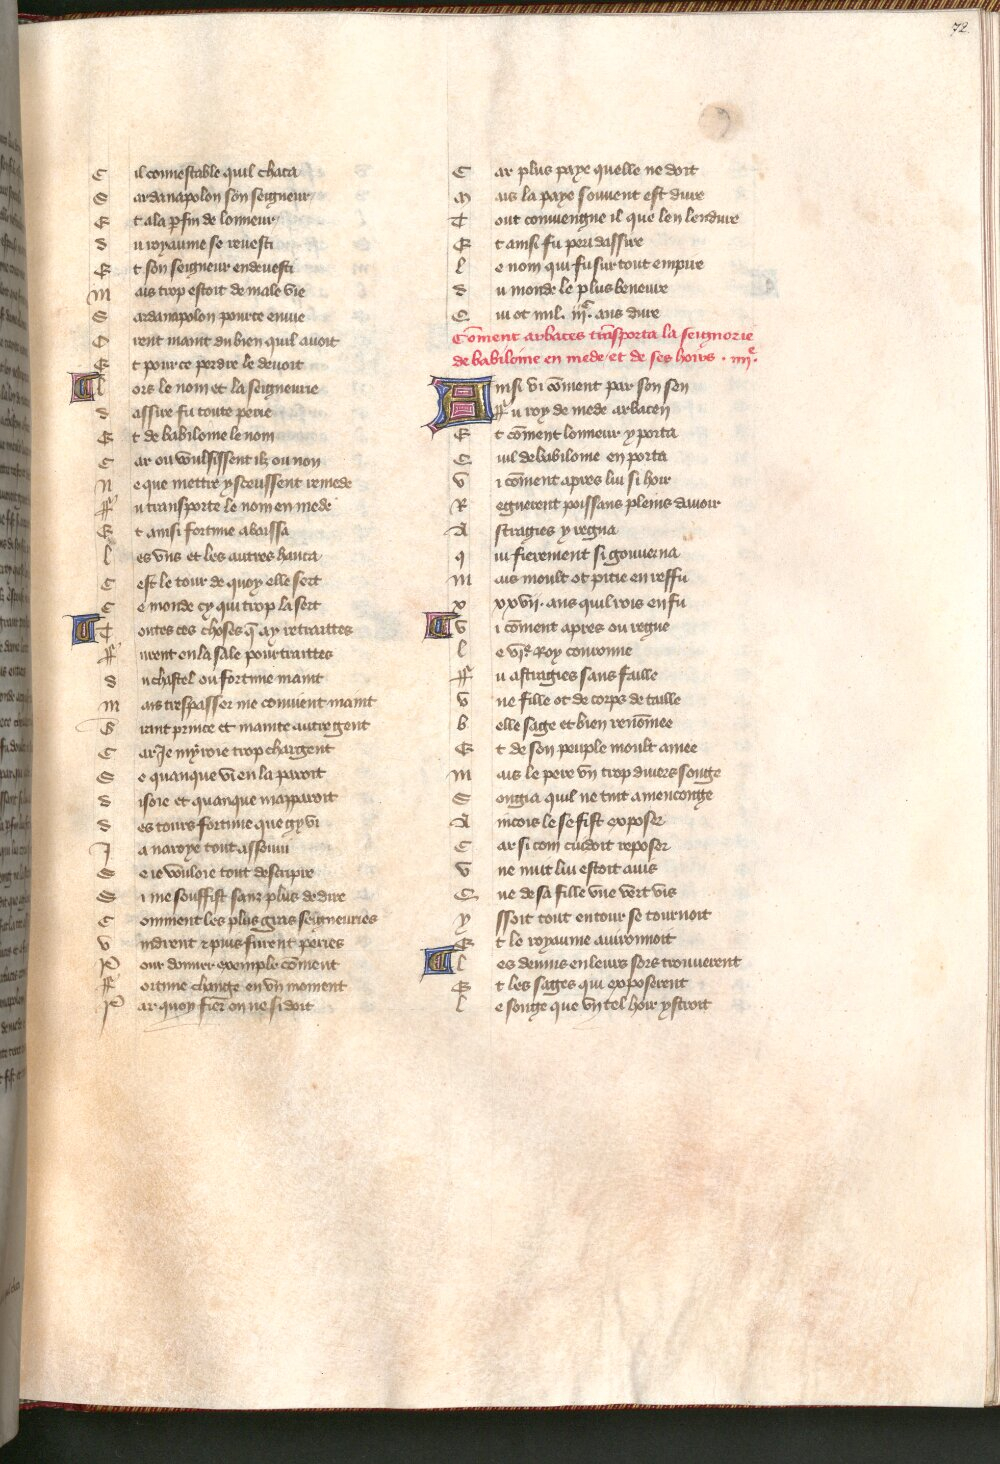 72.
C il connestable quil chaca
S ardanapolon son seigneur
E t a la p fin de lonneur
d u royaume se revesti
E t son seigneur endevesti
M ais trop estoit de male vie
S ardanapolon pource envie
O rent maint du bien quil avoit
E t pource perdre le devoit
L ors le nom et la seigneurie
d assire fu toute perie
E t de babiloine le nom
C ar ou voulsissent ilz ou non
N e que mettre y sceussent remede
ff u transporte le nom en mede
E t ainsi fortune abaissa
l es vns et les autres hauca
C est le tour de quoy elle sert
C e monde cy qui trop la sert
T outes ces choses q̄ ay retraittes
ff urent en la sale pourtraittes
d u chastel ou fortune maint
M ais trespasser me convient maint
G rant prince et mainte autre gent
C ar Je my roie trop chargent
S e quanque vi en la paroit
d isoie et quanque mapparoit
d es tours fortune que gy vi
J a naroye tout assouvi
S e ie vouloie tout descripre
S i me souffist sanz plus de dire
C omment les plus grans seigneuries
V indrent et puis furent peries
P our donner exemple cōment
ff ortune change en vn moment
P ar quoy fier on ne si doit
C ar plus paye quelle ne doit
M ais la paye souvent est dure
T out convengne il que len lendure
E t ainsi fu peri dassire
l e nom qui fu sur tout empire
d u monde le plus beneure
C ui ot mil. iij.c ans dure
Cōment arbaces trāsporta la seignorie
de babiloine en mede et de ses hoirs . iiij.e
A insi vi cōment par son sen
ff u roy de mede arbacen
E t cōment lonneur y porta
C uil de babiloine en porta
V i cōment apres lui si hoir
R egnerent poissans pleins davoir
A stragies y regna
q ui fierement si gouverna
M ais moult ot pitie en reffu
x xxvij. ans quil rois en fu
V i cōment apres ou regne
l e vij.e Roy couronne
ff u astragies sans faille
V ne fille ot de corps de taille
b elle sage et bien renōmee
E t de son peuple moult amee
M ais le pere vn trop divers songe
S ongia quil ne tint a menconge
A incois le se fist exposer
C ar si com cuidoit reposer
V ne nuit lui estoit avis
Q ue de sa fille vne vert vis
y ssoit tout entour se tournoit
E t le royaume avironnoit
L es devins en leurs sors trouverent
E t les sages qui exposerent
l e songe que vn tel hoir ystroit